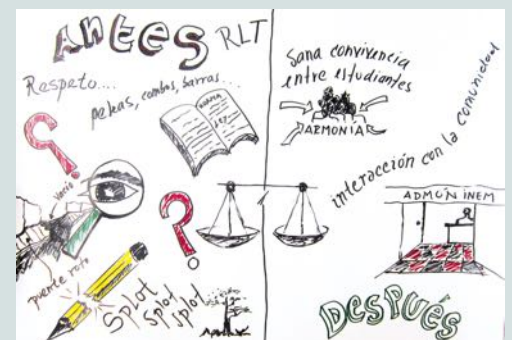 Antes RLT
Respeto....
peleas, combos, barras...
NORMA
LEY
vacío
puente roto
Splot
splot
splot
Sana convivencia
entre estudiantes
ARMONIA
interacción con la comunidad
ADMÓN INEM
DESPUÉS